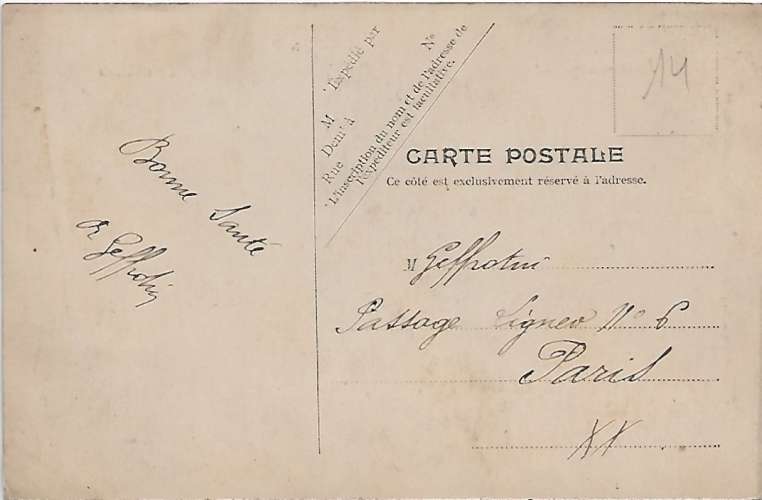 Bonne Santé
Expédié par
M
Demt à
Rue
No
L'inscription du nom et de l'adresse de
l'expéditeur est facultative.
14
CARTE POSTALE
Ce côté est exclusivement réservé à l'adresse.
M Geffrotin
Passage No 6
Paris
XX